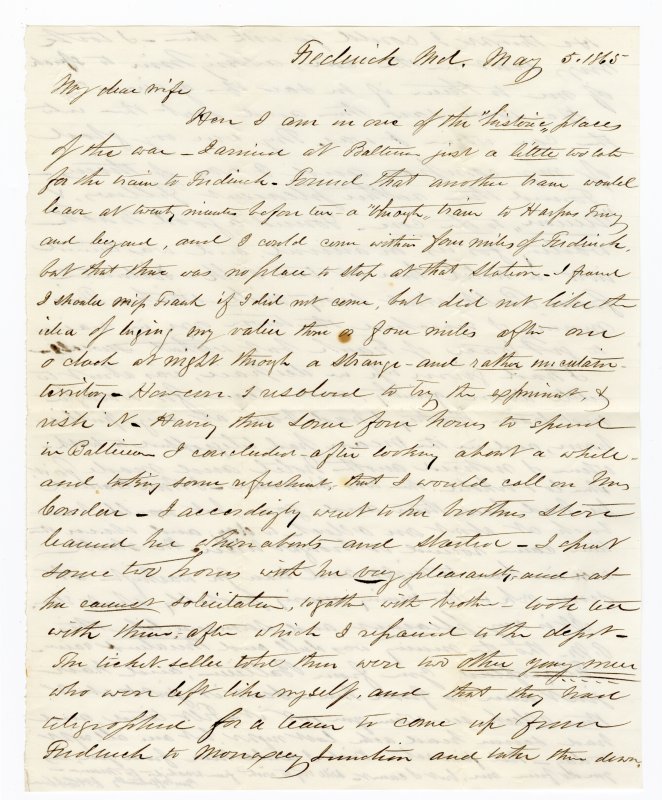 Frederick Md. May 5. 1865
My dear wife
Here I am in one of the "historic" places
of the war - I arrived at Baltimore just a little too late
for the train to Frederick - Found that another train would
leave at twenty minutes before ten - a "through" train to Harpers Ferry
and beyond, and I could come within four miles of Frederick,
but that there was no place to stop at that station - I feared
I should miss Frank if I did not come, but did not like the
idea of luging my valise three or four miles after one
o clock at night through a strange - and rather uncertain -
territory - However I resolved to try the experiment, &
risk it - Having then some four hours to spend
in Baltimore I concluded - after looking about a while -
and taking some refreshment, that I would call on Mrs
- I accordingly went to her brothers store
learned her whereabouts and started - I spent
some two hours with her very pleasantly, and at
her earnest solicitation, together with brother - took tea
with them, after which I repaired to the depot -
The ticket seller told there were two other young men
who were left like myself, and that they had
telegraphed for a team to come up from
Frederick to Monoxcey Junction and take them down.